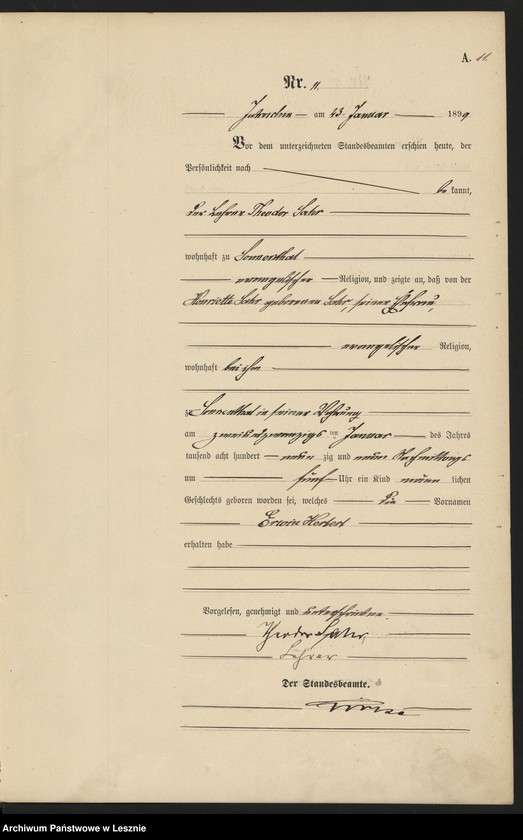 A. 11.
Nr. 11.
am 23. Januar 1899
Vor dem unterzeichneten Standesbeamten erschien heute, der
Persönlichkeit nach
be kannt,
der Lehrer Theodor Sahr
wohnhaft zu Sonnenthal
evangelischer Religion, und zeigte an, daß von der
Henriette Sahr geborenen Sahr, seiner Ehefrau,
evangelischer Religion,
wohnhaft bei ihm
zu Sonnenthal in seiner Wohnung
am zweiundzwanzigs ten Januar des Jahres
tausend acht hundert neun zig und neun Nachmittags
um fünf Uhr ein Kind männ lichen
Geschlechts geboren worden sei, welches die Vornamen
Erwin Herbert
erhalten habe
Vorgelesen, genehmigt und unterschrieben.
Theodor Sahr,
Lehrer
Der Standesbeamte.
Archiwum Państwowe w Lesznie